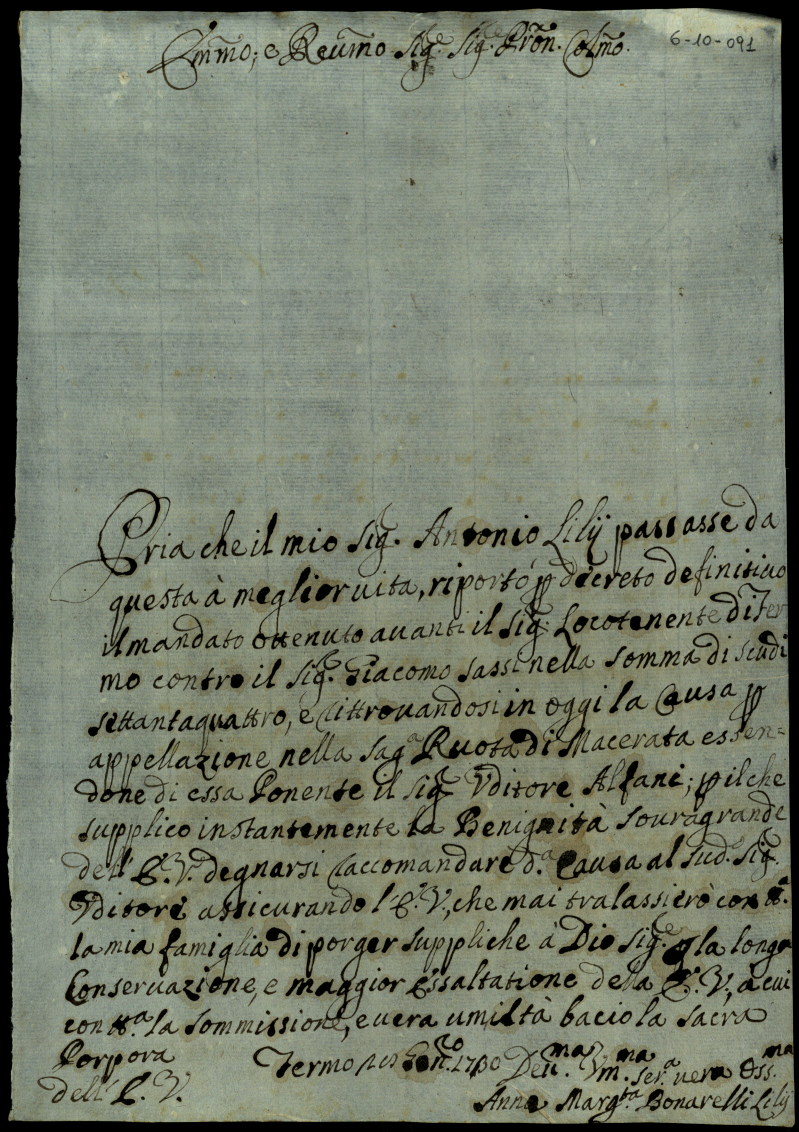 Em̃mo, e Reuer̃mo Sig.e Sig.e Pr̃on. Colm̃o.
6-10-091
Pria che il mio Sig.e Antonio Lilij passasse da
questa à meglior uita, riportò ꝑ decreto definitiuo
il mandato ottenuto auanti il Sig.e Locotenente di Fer
mo contro il Sig.e Giacomo Sassi nella somma di scudi
settantaquattro, e rittrouandosi in oggi la Causa ꝑ
appellazione nella Sag.a Ruota di Macerata essen=
done di essa Ponente il Sig.e Vditore Alfani; ꝑ il che
supplico instantemente la Benignità souragrande
dell' E. V. degnarsi raccomandare d.a Causa al sud.o Sig.e
Vditore assicurando l'E. V., che mai tralassierò con tt.a
la mia famiglia di porger suppliche à Dio Sig.e ꝑ la longa
Conseruazione, e maggior Essaltatione della E. V., à cui
con tt.a la sommissione, e uera umiltà bacio la sacra
Porpora
Fermo Gen.ro 1730
dell' E. V.
Deu.ma Vm.ma ser.a uera Oss.ma
Anna Marg.ta Bonarelli Lilij